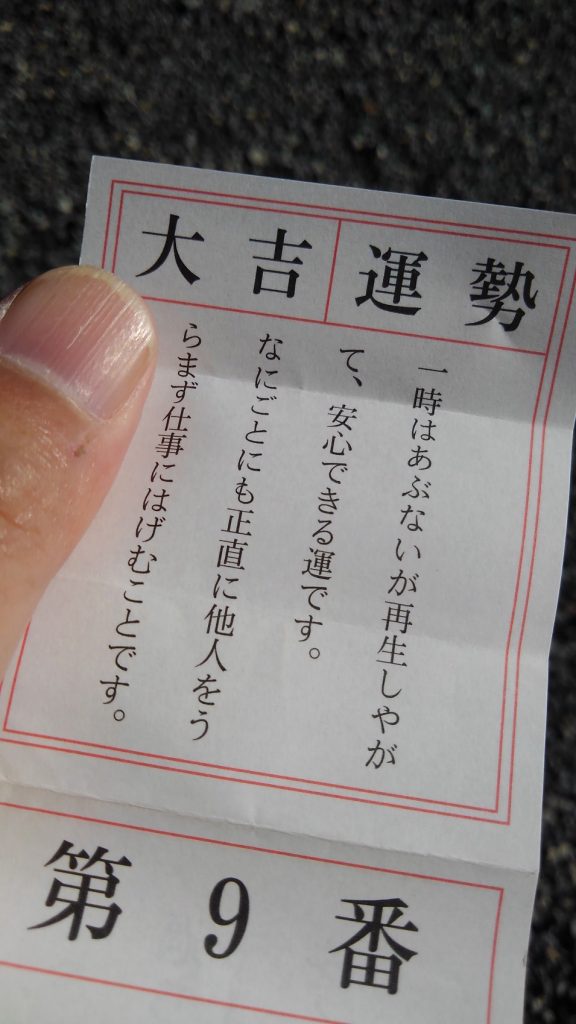 大吉 運勢
一時はあぶないが再生しやが
て、安心できる運です。
なにごとにも正直に他人をう
らまず仕事にはげむことです。
第9番